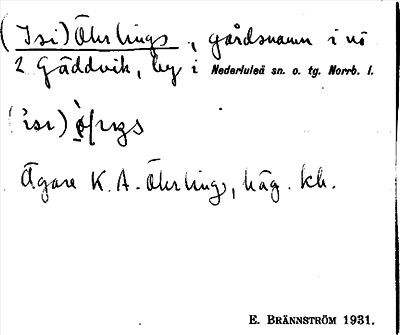 (Isi) Öhrlings, gårdsnamn i nö
2 Gäddvik, by i Nederluleå sn. o. tg. Norrb. l.
Ägare K. A. Öhrling, häg. kh.
E. BRÄNNSTRÖM 1931.